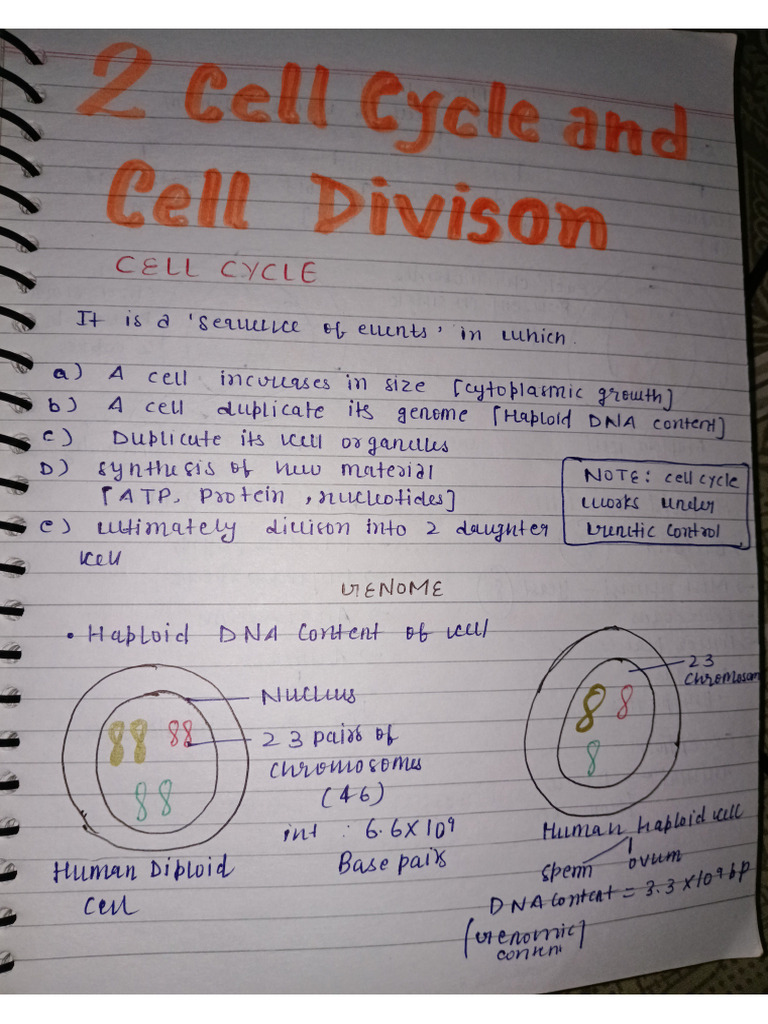 2 Cell Cycle and
Cell Divison
CELL CYCLE
It is a 'sequence of events' in which
a) A cell increases in size [cytoplasmic growth]
b) A cell duplicate its genome [Haploid DNA content]
c) Duplicate its cell organelles
D) synthesis of new material
[ATP, Protein, nucleotides]
e) ultimately divison into 2 daughter
cell
NOTE: cell cycle
works under
Genetic control
GENOME
• Haploid DNA Content of cell
Nucleus
23 pairs of
chromosomes
(46)
int : 6.6×10⁹
Base pairs
Human Diploid
Cell
23
chromosom
Human Haploid cell
sperm ovum
DNA content = 3.3×10⁹ bp
[Genomic]
content